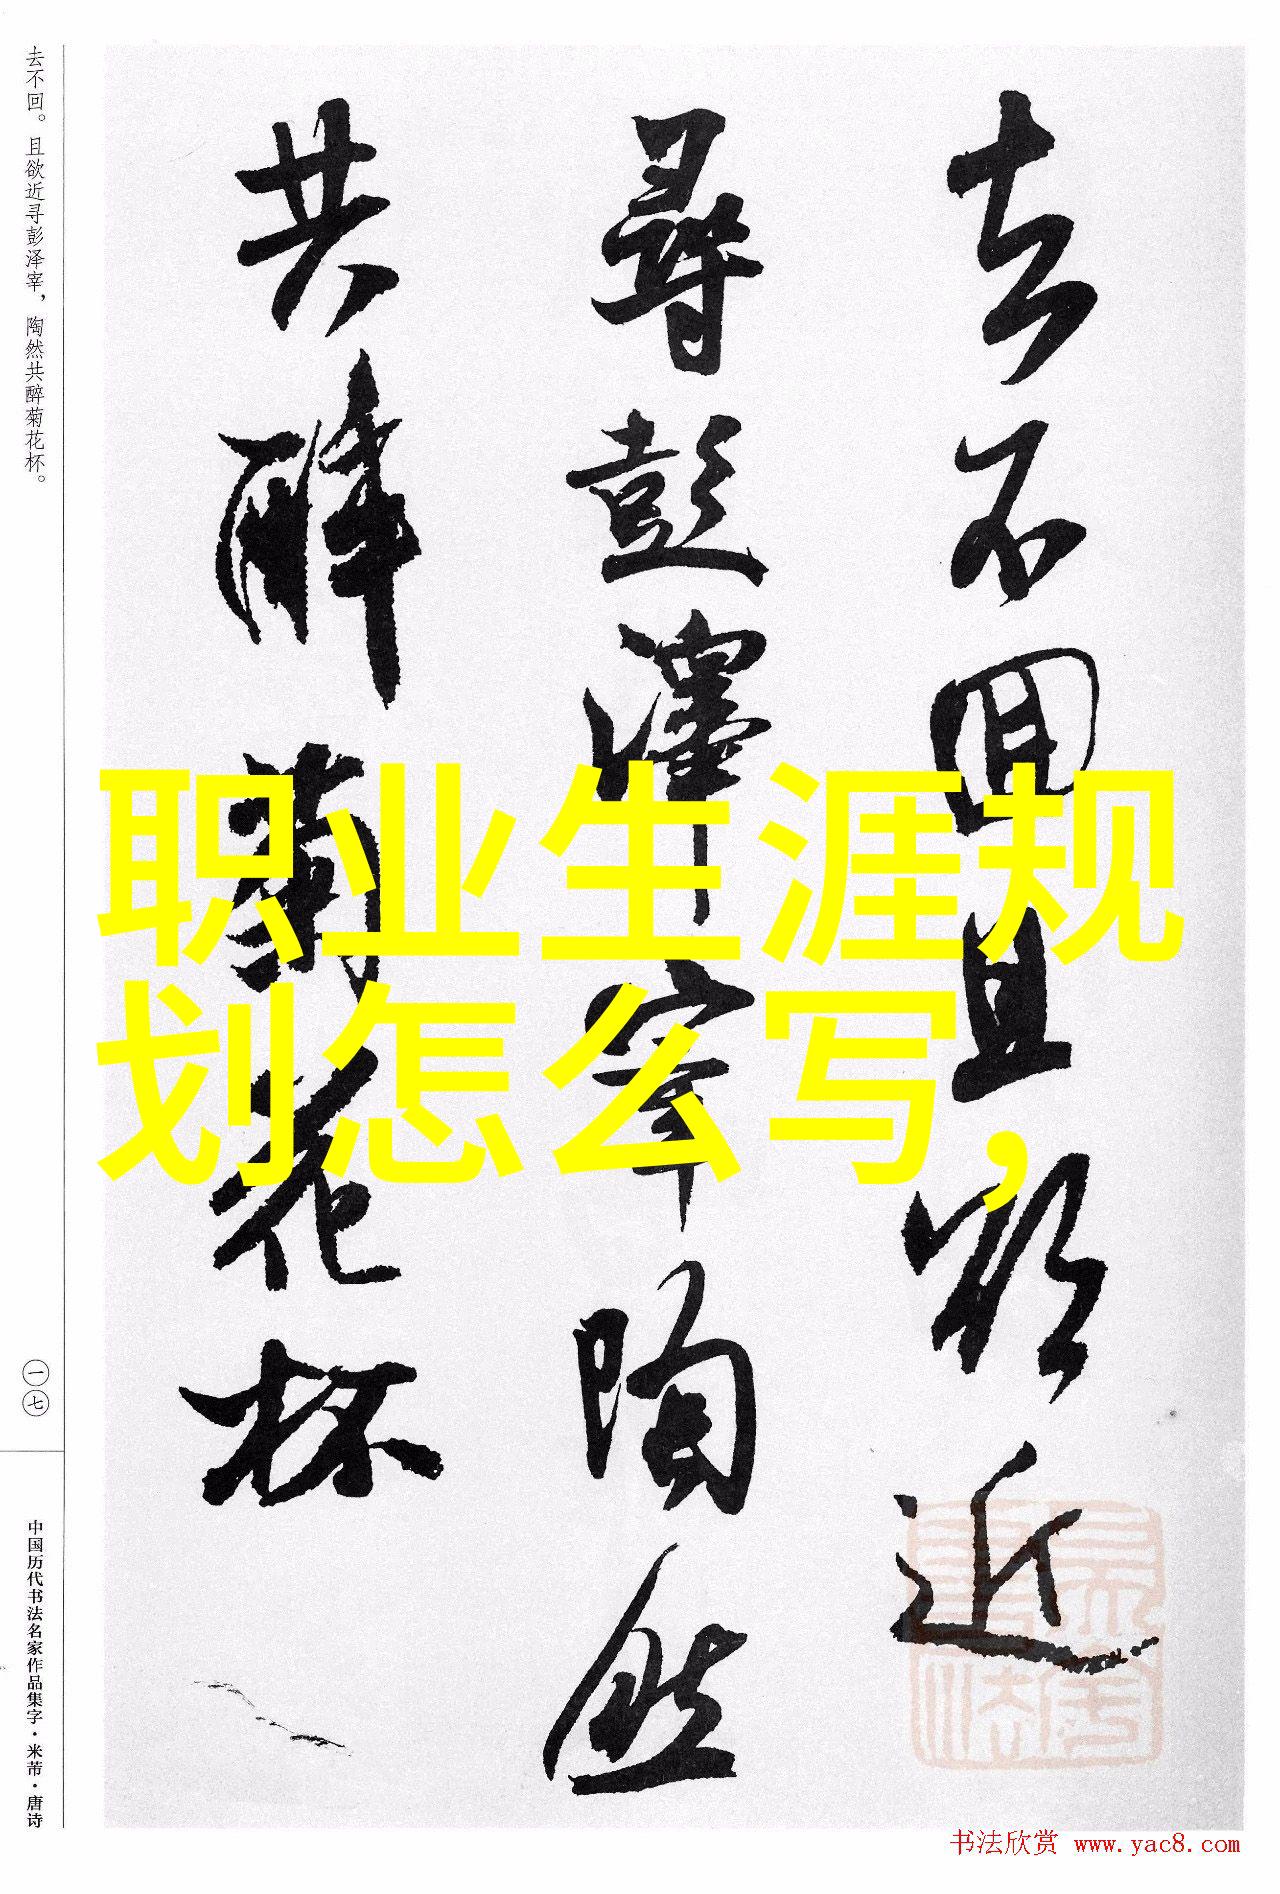 去不回且欲近
尋彭澤宰陶然
共醉菊花杯
去不回。且欲近寻彭泽宰，陶然共醉菊花杯。
一七
中国历代书法名家作品集字·米芾·唐诗
职业生涯规
划怎么写，
书法欣赏 www.yac8.com